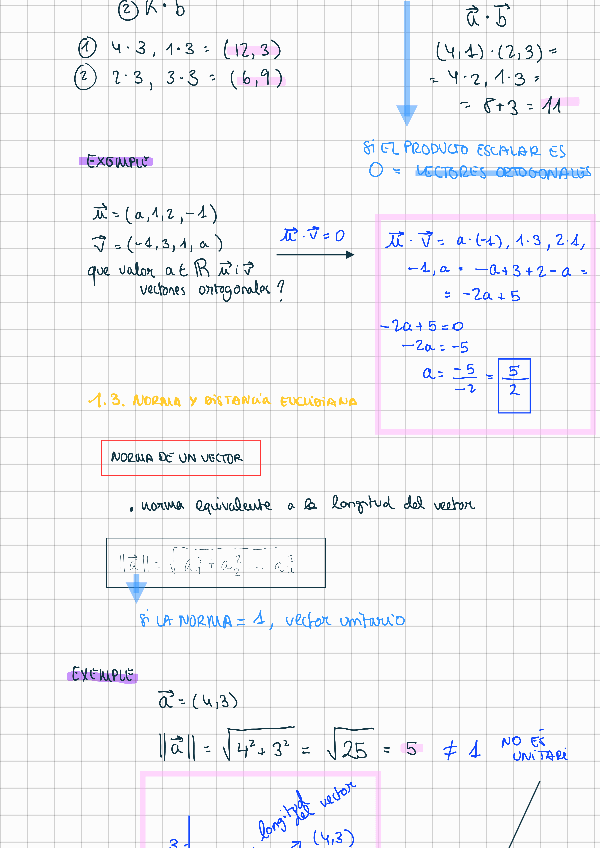 ② K · b
① 4·3, 1·3 = (12,3)
② 2·3, 3·3 = (6,9)
a⃗ · b⃗
(4,1)·(2,3) =
= 4·2, 1·3 =
= 8+3 = 11
SI EL PRODUCTO ESCALAR ES
0 = VECTORES ORTOGONALES
EXEMPLE
u⃗ = (a,1,2,-1)
v⃗ = (-1,3,1,a)
que valor a ∈ ℝ u⃗ i v⃗
vectores ortogonales?
u⃗ · v⃗ = 0
u⃗ · v⃗ = a·(-1), 1·3, 2·1,
-1,a = -a+3+2-a =
= -2a+5
-2a+5=0
-2a = -5
a = -5/-2 = 5/2
1.3. NORMA Y DISTANCIA EUCLIDIANA
NORMA DE UN VECTOR
• norma equivalente a la longitud del vector
||a⃗|| =
SI LA NORMA = 1, vector unitario
EXEMPLE
a⃗ = (4,3)
||a⃗|| = √4²+3² = √25 = 5 ≠ 1 NO ES
UNITARI
longitud
del vector
(4,3)
3